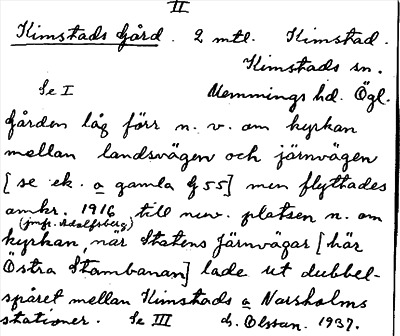 II
Kimstads gård. 2 mtl. Kimstad.
Kimstads sn.
Se I Memmings hd. Ögl.
Gården låg förr n. v. om kyrkan
mellan landsvägen och järnvägen
[se ek. a gamla G 55] men flyttades
omkr. 1916 till nuv. platsen n. om
(jmfr. Adolfsberg)
kyrkan, när Statens Järnvägar [här
Östra Stambanan] lade ut dubbel-
spåret mellan Kimstads a Norsholms
stationer. Se III d. Olsson. 1937.